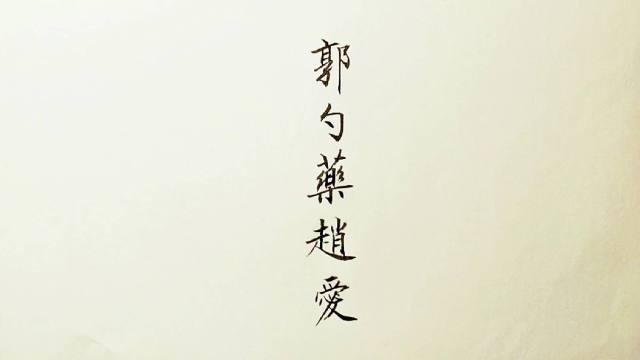 郭勺藥趙愛